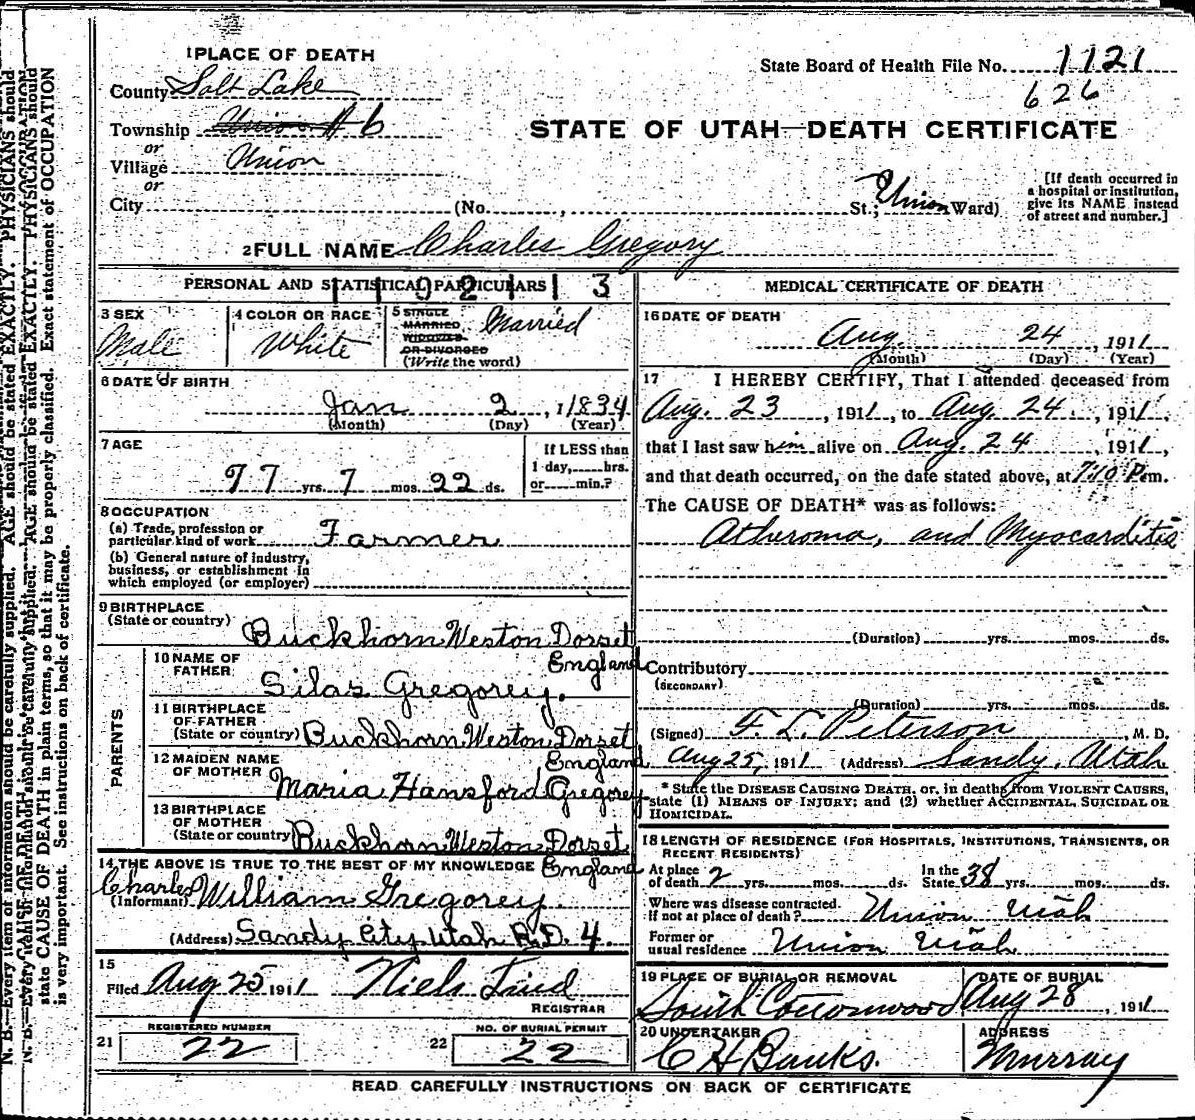 1 PLACE OF DEATH
State Board of Health File No. 1121
County Salt Lake
626
Township Union # 6
or
STATE OF UTAH—DEATH CERTIFICATE
Village Union
or
City (No. , St.; Union Ward)
[If death occurred in a hospital or institution, give its NAME instead of street and number.]
2 FULL NAME Charles Gregory
PERSONAL AND STATISTICAL PARTICULARS
3 SEX
Male
4 COLOR OR RACE
White
5 SINGLE
MARRIED,
WIDOWED,
OR DIVORCED
(Write the word)
Married
6 DATE OF BIRTH
Jan 2, 1834
(Month) (Day) (Year)
7 AGE
77 yrs. 7 mos. 22 ds.
If LESS than
1 day, hrs.
or min.?
8 OCCUPATION
(a) Trade, profession or
particular kind of work Farmer
(b) General nature of industry,
business, or establishment in
which employed (or employer)
9 BIRTHPLACE
(State or country)
Buckhorn Weston Dorset
England
PARENTS
10 NAME OF
FATHER
Silas Gregorey.
11 BIRTHPLACE
OF FATHER
(State or country) Buckhorn Weston Dorset
England
12 MAIDEN NAME
OF MOTHER
Maria Hansford Gregorey
13 BIRTHPLACE
OF MOTHER
(State or country) Buckhorn Weston Dorset
England
14 THE ABOVE IS TRUE TO THE BEST OF MY KNOWLEDGE
Charles William Gregorey.
(Informant)
(Address) Sandy City Utah R.D. 4.
15
Filed Aug 25 1911 Niels Lind
REGISTRAR
21 REGISTERED NUMBER
22
22 NO. OF BURIAL PERMIT
22
MEDICAL CERTIFICATE OF DEATH
16 DATE OF DEATH
Aug. 24, 1911
(Month) (Day) (Year)
17 I HEREBY CERTIFY, That I attended deceased from
Aug. 23, 1911, to Aug. 24, 1911,
that I last saw him alive on Aug. 24, 1911,
and that death occurred, on the date stated above, at 7:10 P.m.
The CAUSE OF DEATH* was as follows:
Atheroma, and Myocarditis
(Duration) yrs. mos. ds.
Contributory
(SECONDARY)
(Duration) yrs. mos. ds.
(Signed) F. L. Peterson, M. D.
Aug 25, 1911 (Address) Sandy, Utah
* State the DISEASE CAUSING DEATH, or, in deaths from VIOLENT CAUSES,
state (1) MEANS OF INJURY; and (2) whether ACCIDENTAL, SUICIDAL OR
HOMICIDAL.
18 LENGTH OF RESIDENCE (FOR HOSPITALS, INSTITUTIONS, TRANSIENTS, OR
RECENT RESIDENTS)
At place
of death 2 yrs. mos. ds.
In the
State 38 yrs. mos. ds.
Where was disease contracted
if not at place of death? Union Utah
Former or
usual residence Union Utah
19 PLACE OF BURIAL OR REMOVAL
South Cottonwood
DATE OF BURIAL
Aug 28, 1911
20 UNDERTAKER
C H Banks.
ADDRESS
Murray
READ CAREFULLY INSTRUCTIONS ON BACK OF CERTIFICATE
N. B.—Every item of information should be carefully supplied. AGE should be stated EXACTLY. PHYSICIANS should
state CAUSE OF DEATH in plain terms, so that it may be properly classified. Exact statement of OCCUPATION
is very important. See instructions on back of certificate.